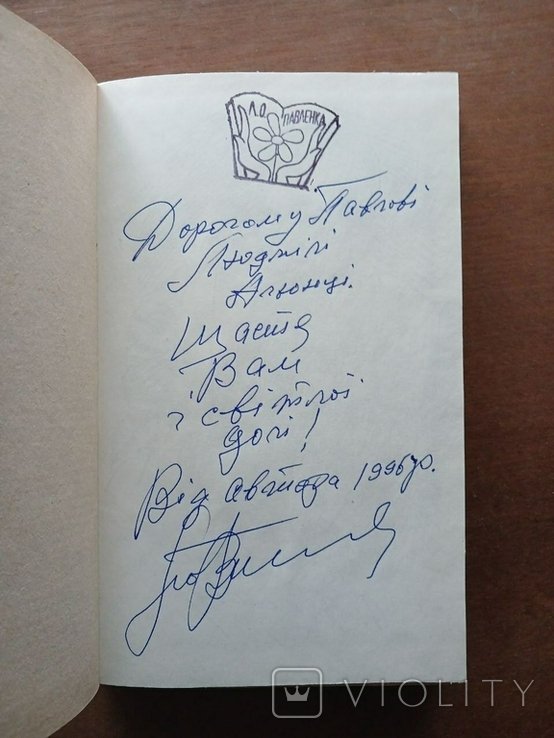 Л.О. ПАВЛЕНКА
Дорогому Павлові
Людмилі
Альонці.
Щастя
Вам
і світлої
долі!
Від автора 1996 р.
VIOLITY